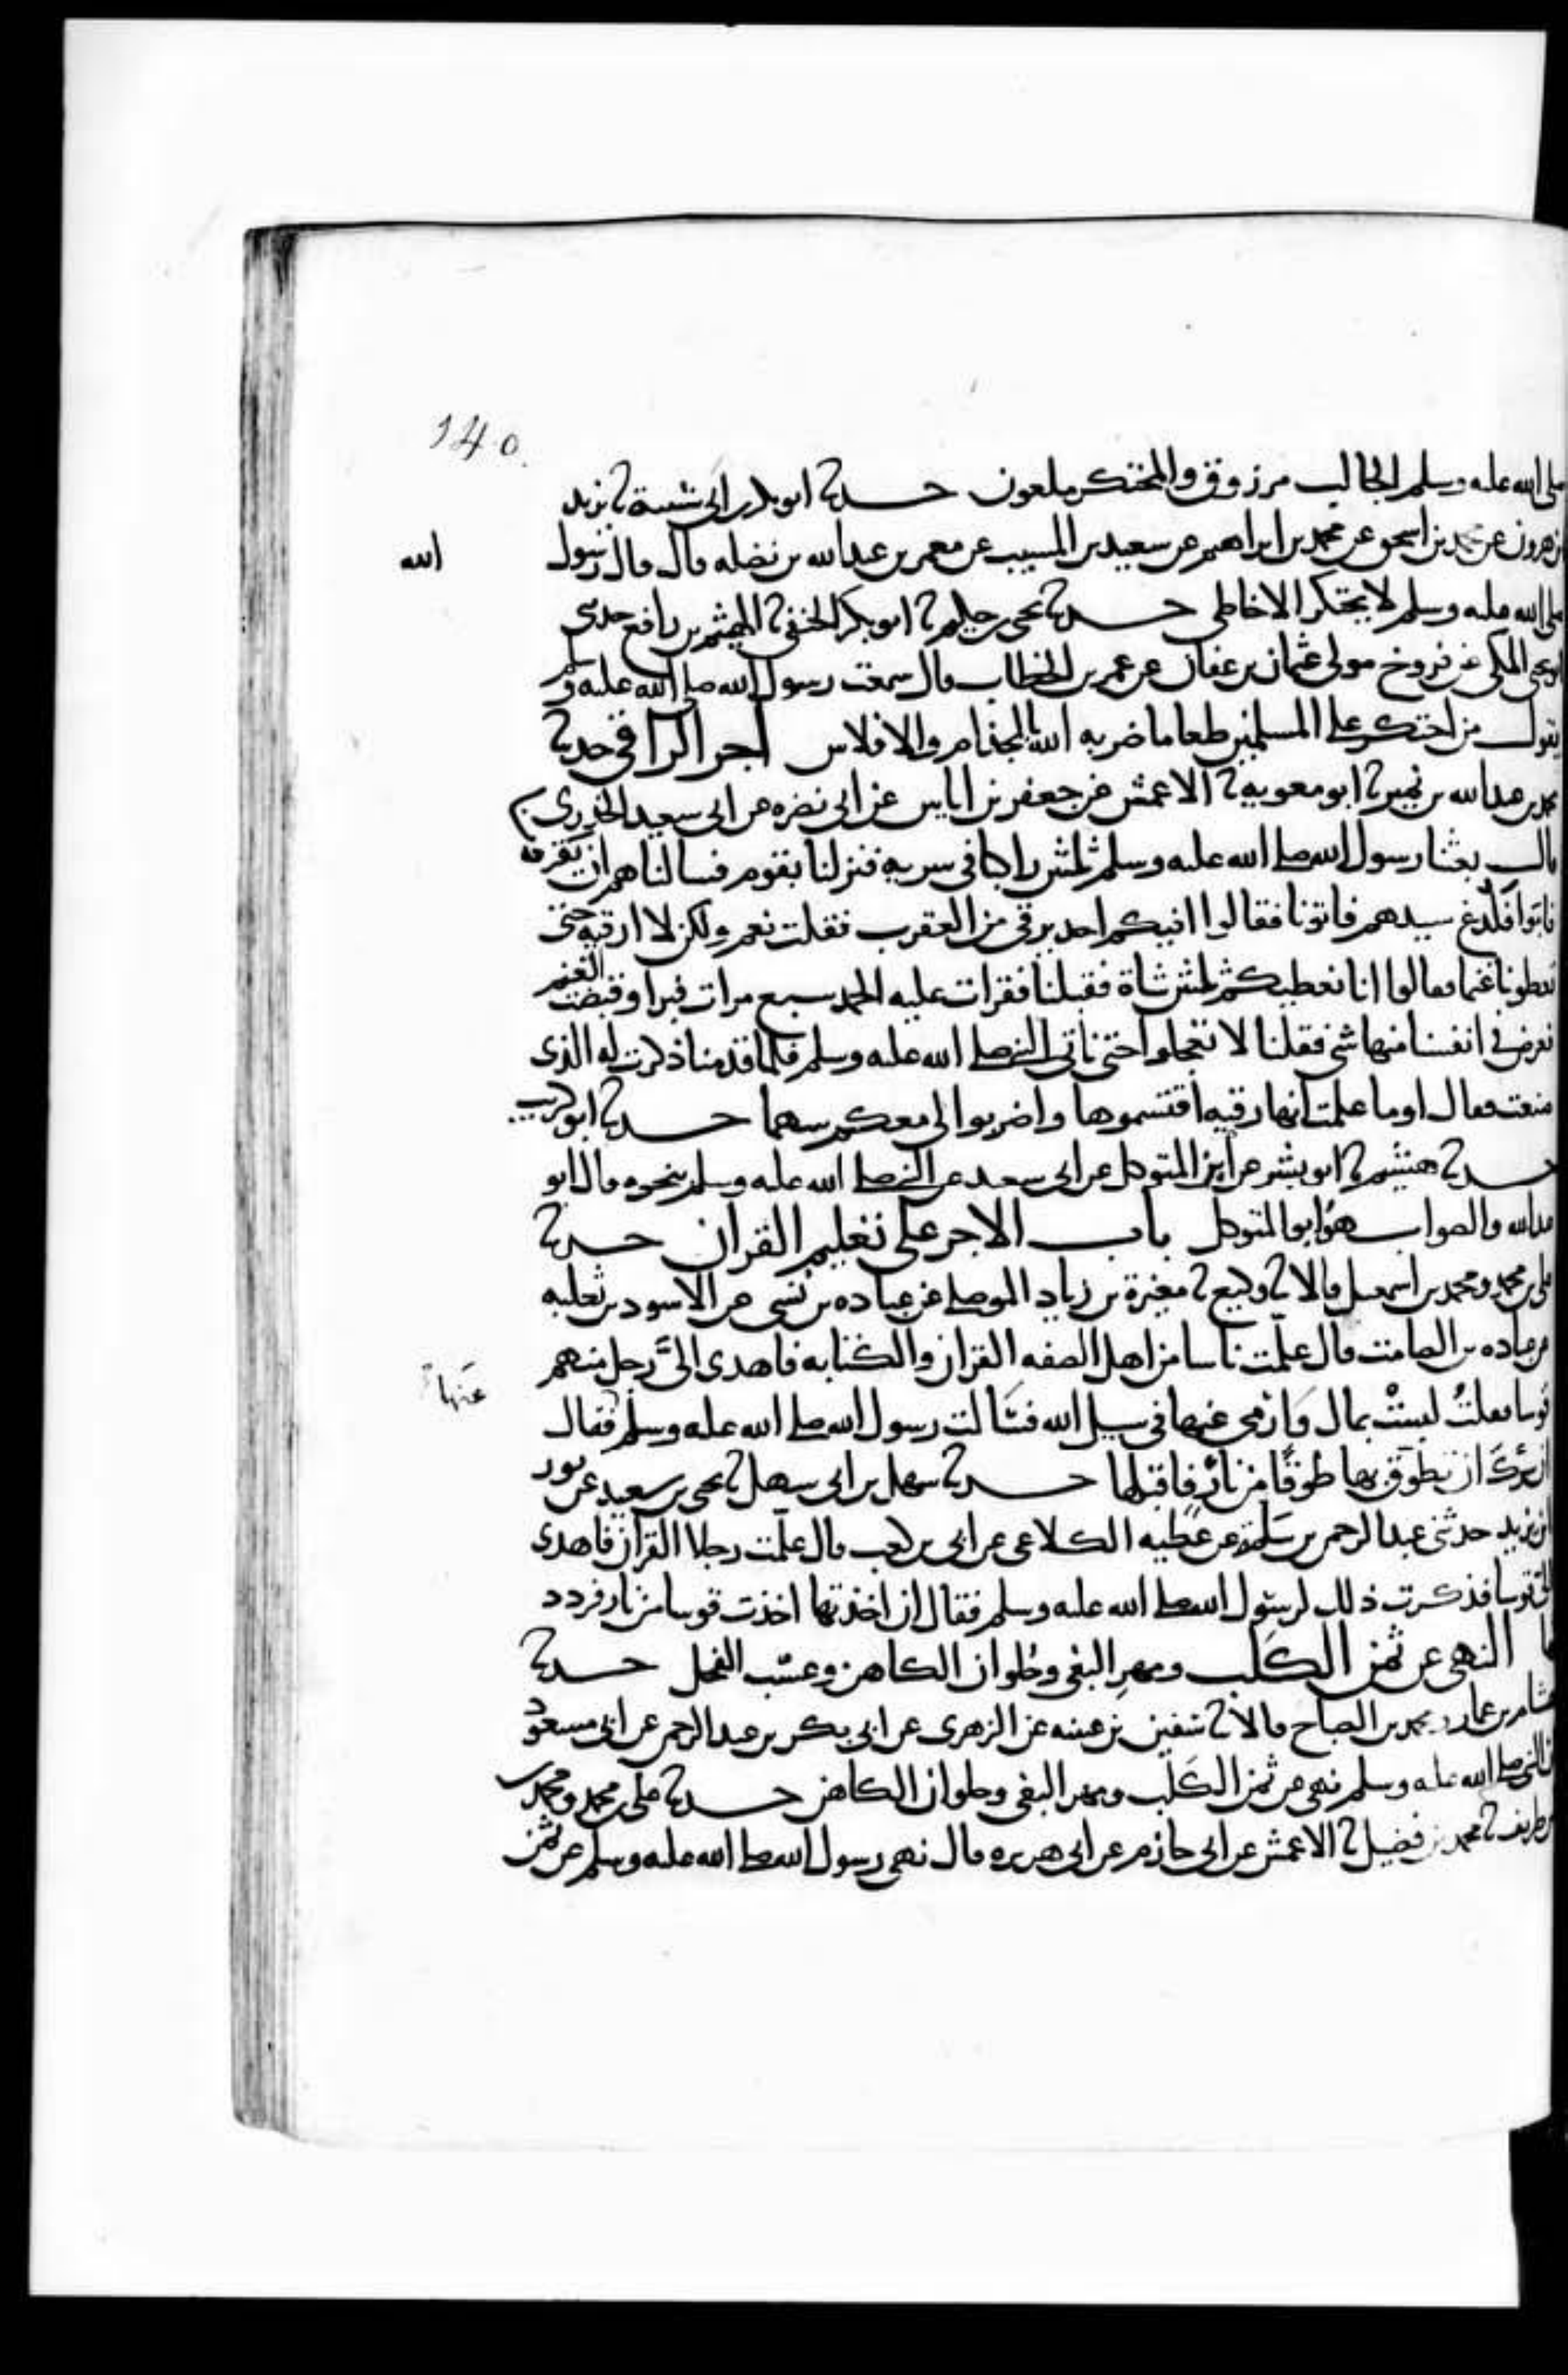 140
صلى الله عليه وسلم الجالب مرزوق والمحتكر ملعون حدثنا ابو بكر بن ابي شيبة ثنا يزيد
بن هرون عن محمد بن اسحق عن محمد بن ابراهيم عن سعيد بن المسيب عن معمر بن عبد الله بن نضله قال قال رسول
الله
صلى الله عليه وسلم لا يحتكر الا خاطى حدثنا يحيى بن حكيم ثنا ابو بكر الحنفي ثنا الهيثم بن رافع حدثنى
ابو يحيى المكى عن فروخ مولى عثمان بن عفان عن عمر بن الخطاب قال سمعت رسول الله صلى الله عليه وسلم
يقول من احتكر على المسلمين طعاما ضربه الله بالجذام والافلاس اجر الراقي حدثنا
محمد بن عبد الله بن نمير ثنا ابو معويه ثنا الاعمش عن جعفر بن اياس عن ابي نضره عن ابي سعيد الخدرى
قال بعثنا رسول الله صلى الله عليه وسلم ثلثين راكبا في سريه فنزلنا بقوم فسالناهم ان يقرونا
فابوا فلدغ سيدهم فاتونا فقالوا افيكم احد يرقي من العقرب فقلت نعم ولكن لا ارقيه حتى
تعطونا غنما فقالوا انا نعطيكم ثلثين شاة فقبلنا فقرات عليه الحمد سبع مرات فبرا وقبضت الغنم
فعرض في انفسنا منها شي فقلنا لا تعجلوا حتى ناتي النبي صلى الله عليه وسلم فلما قدمنا ذكرت له الذى
صنعت فقال او ما علمت انها رقيه اقتسموها واضربوا لي معكم سهما حدثنا ابو كريب
حدثنا هشيم ثنا ابو بشر عن ابن المتوكل عن ابي سعيد عن النبي صلى الله عليه وسلم بنحوه قال ابو
عبد الله والصواب هو ابو المتوكل باب الاجر على تعليم القران حدثنا
على بن محمد ومحمد بن اسمعيل قالا ثنا وكيع ثنا مغيرة بن زياد الموصلي عن عباده بن نسى عن الاسود بن ثعلبه
عن عباده بن الصامت قال علمت ناسا من اهل الصفه القران والكتابه فاهدى الىَّ رجل منهم
عنها
قوسا فقلتُ ليستْ بمال وَارمى عنها في سبيل الله فسَالت رسول الله صلى الله عليه وسلم فقال
ان سرك ان تطوق بها طوقًا من نار فاقبلها حدثنا سهل بن ابي سهل ثنا يحيى بن سعيد عن ثور
بن يزيد حدثني عبد الرحمن بن سلمة عن عطيه الكلاعي عن ابي بن كعب قال علّمت رجلا القران فاهدى
الىّ قوسا فذكرت ذلك لرسول الله صلى الله عليه وسلم فقال ان اخذتها اخذت قوسا من نار فردد
تها النهى عن ثمن الكلب ومهرِ البغى وحُلوان الكاهن وعسب الفحل حدثنا
هشام بن عمار ومحمد بن الصباح قالا ثنا سفين بن عيينه عن الزهرى عن ابي بكر بن عبد الرحمن عن ابي مسعود
ان النبي صلى الله عليه وسلم نهى عن ثمن الكلب ومهر البغى وحلوان الكاهن حدثنا على بن محمد ومحمد بن
طريف ثنا محمد بن فضيل ثنا الاعمش عن ابي حازم عن ابي هريره قال نهى رسول الله صلى الله عليه وسلم عن ثمن